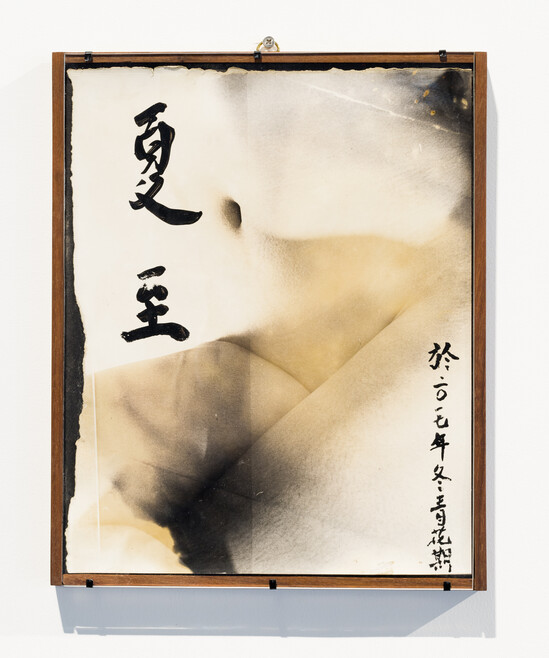 夏至
於二〇一七年冬青花期